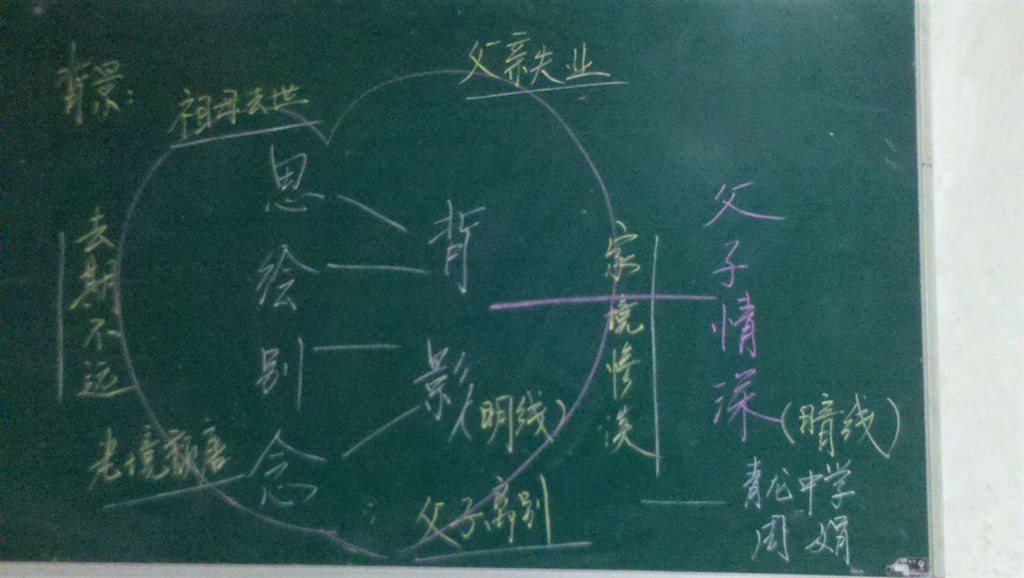 背景：
祖母去世
父亲失业
去期不远
思
绘
别
念
背影
(明线)
家境惨淡
父子情深
(暗线)
老境颓唐
父子离别
青龙中学
周娟